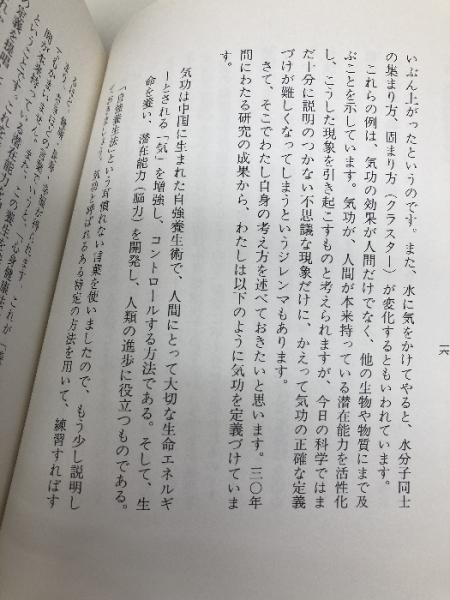 一六
いぶん上がったというのです。また、水に気をかけてやると、水分子同士
の集まり方、固まり方(クラスター)が変化するともいわれています。
これらの例は、気功の効果が人間だけでなく、他の生物や物質にまで及
ぶことを示しています。気功が、人間が本来持っている潜在能力を活性化
し、こうした現象を引き起こすものと考えられますが、今日の科学ではま
だ十分に説明のつかない不思議な現象だけに、かえって気功の正確な定義
づけが難しくなってしまうというジレンマもあります。
さて、そこでわたし自身の考え方を述べておきたいと思います。三〇年
間にわたる研究の成果から、わたしは以下のように気功を定義づけていま
す。
気功は中国に生まれた自強養生術で、人間にとって大切な生命エネルギ
ーとされる「気」を増強し、コントロールする方法である。そして、生
命を養い、潜在能力(脳力)を開発し、人類の進歩に役立つものである。
「自強養生法」という耳慣れない言葉を使いましたので、もう少し説明し
気功と呼ばれるある特定の方法を用いて、練習すればす